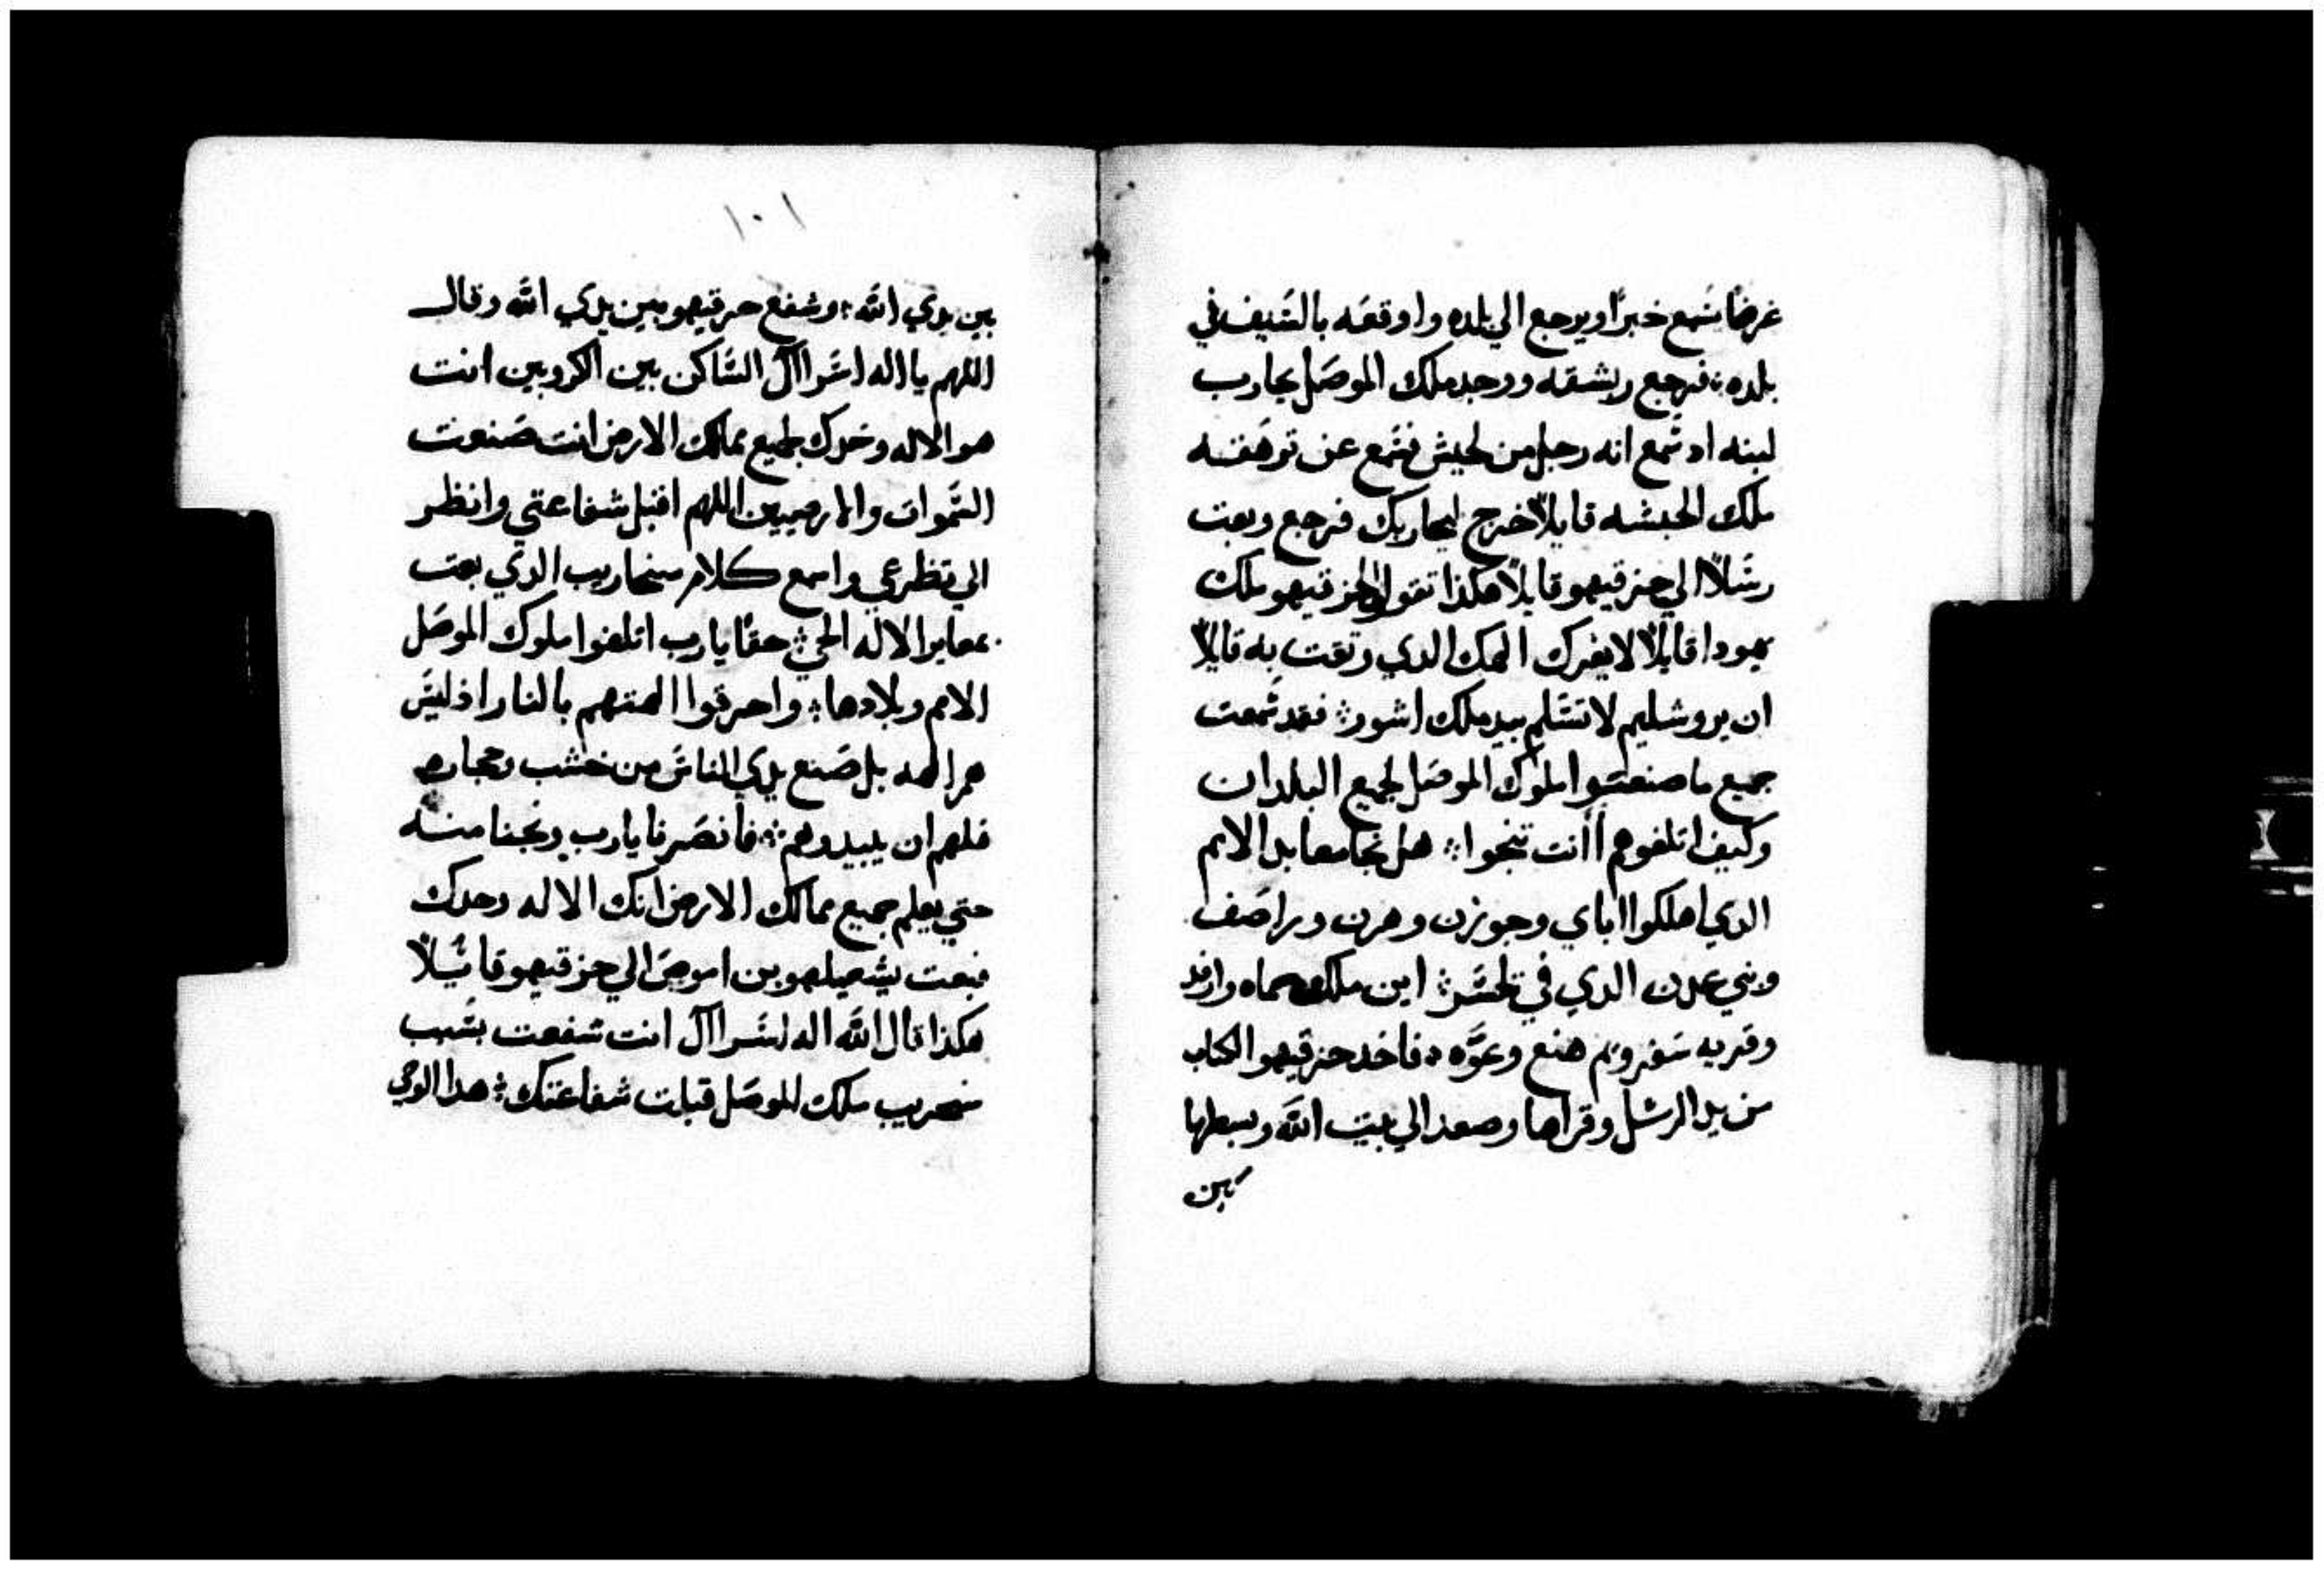 غرضًا يسمع خبرًا ويرجع الي بلده واوقعه بالسيف في
بلده؛ فرجع ربشقه ووجد ملك الموصل يحارب
لبنه اد سمع انه رحل من لحيش فسمع عن ترهقه
ملك الحبشه قايلاً خرج ليحاربك فرجع وبعت
رسلاً الي حزقيهو قايلاً هكذا تقولوا لحزقيهو ملك
يهودا قايلاً لا يغرك الهك الدي وتقت به قايلاً
ان يروشليم لا تسلم بيد ملك اشور؛ فقد سمعت
جميع ما صنعتوا ملوك الموصل لجميع البلدان
وكيف اتلفوهم اانت تنجوا؛ هل نجا معابد الامم
الدي اهلكوا اباي وجوزن وحرن وراصف
وبني عدن الدي في تلحسر؛ اين ملك حماه وارفد
وقريه سفرويم هنع وعوه؛ فاخد حزقيهو الكتاب
من يد الرسل وقراها وصعد الي بيت الله وبسطها
بين
١٠١
بين يدي الله؛ وشفع حزقيهو بين يدي الله وقال
اللهم يا اله اسراال الساكن بين الكروبين انت
هو الاله وحدك لجميع ممالك الارض انت صنعت
السموات والارضيين اللهم اقبل شفاعتي وانظر
الي تظرعي واسمع كلام سنحاريب الدي بعت
معايرا لاله الحي؛ حقًا يارب اتلفوا ملوك الموصل
الامم وبلادها؛ واحرقوا الهتهم بالنار اذ ليس
هم الهه بل صنع يدي الناس من خشب وحجاره
فلهم ان يبيدوهم؛ فانصرنا يارب ونجنا منه
حتي يعلم جميع ممالك الارض انك الاله وحدك
فبعت يشعيلهو بن اموص الي حزقيهو قايلاً
هكذا قال الله اله اسراال انت شفعت بسبب
سنحريب ملك الموصل قبلت شفاعتك؛ هدا الوحي